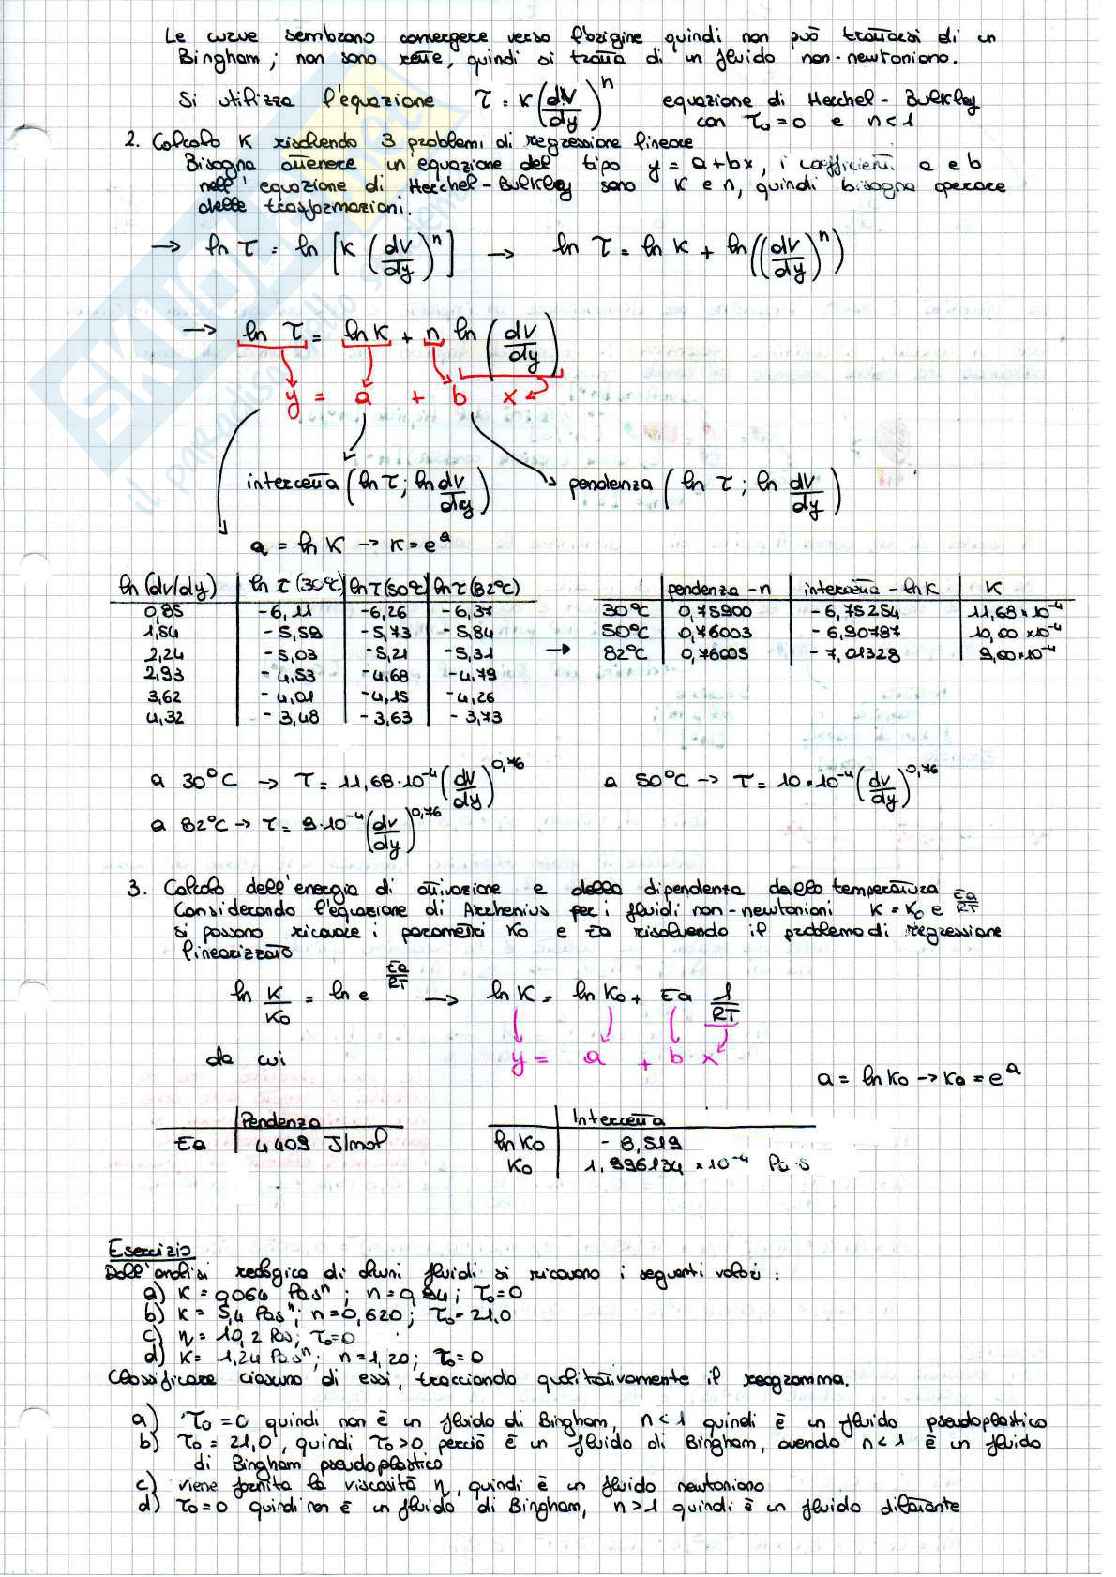 Le curve sembrano convergere verso l'origine quindi non può trattarsi di un
Bingham; non sono rette, quindi si tratta di un fluido non-newtoniano.
Si utilizza l'equazione τ = K(dv/dy)^n equazione di Herchel-Bulkley
con τ₀=0 e n<1
2. Calcolo K risolvendo 3 problemi di regressione lineare
Bisogna ottenere un'equazione del tipo y = a+bx, i coefficienti a e b
nell'equazione di Herchel-Bulkley sono K e n, quindi bisogna operare
delle trasformazioni.
→ ln τ = ln [K (dv/dy)^n] → ln τ = ln K + ln((dv/dy)^n)
→ ln τ = ln K + n ln (dv/dy)
y = a + b x
intercetta (ln τ; ln dv/dy) pendenza (ln τ; ln dv/dy)
a = ln K → K = e^a
ln(dv/dy) ln τ (30°C) ln τ (50°C) ln τ (82°C)
0,85 -6,11 -6,26 -6,37
1,54 -5,59 -5,73 -5,84
2,24 -5,03 -5,21 -5,31
2,93 -4,53 -4,68 -4,79
3,62 -4,01 -4,15 -4,26
4,32 -3,48 -3,63 -3,73
pendenza - n intercetta - ln K K
30°C 0,75900 -6,75254 11,68×10⁻⁴
50°C 0,76003 -6,90787 10,00×10⁻⁴
→ 82°C 0,76005 -7,01328 9,00×10⁻⁴
a 30°C → τ = 11,68·10⁻⁴ (dv/dy)^0,76 a 50°C → τ = 10·10⁻⁴ (dv/dy)^0,76
a 82°C → τ = 9·10⁻⁴ (dv/dy)^0,76
3. Calcolo dell'energia di attivazione e della dipendenza dalla temperatura
Considerando l'equazione di Arrhenius per i fluidi non-newtoniani K = K₀ e^(Ea/RT)
si possono ricavare i parametri K₀ e Ea risolvendo il problema di regressione
linearizzato
ln K/K₀ = ln e^(Ea/RT) → ln K = ln K₀ + Ea 1/RT
da cui y = a + b x
a = ln K₀ → K₀ = e^a
Pendenza
Ea 4409 J/mol
Intercetta
ln K₀ -8,519
K₀ 1,996134 × 10⁻⁴ Pa·s
Esercizio
Dall'analisi reologica di alcuni fluidi si ricavano i seguenti valori:
a) K = 0,064 Pasⁿ; n = 0,84; τ₀=0
b) K = 5,4 Pasⁿ; n=0,620; τ₀= 21,0
c) η = 10,2 Pas; τ₀=0
d) K = 1,24 Pasⁿ; n=1,20; τ₀=0
Classificare ciascuno di essi, tracciando qualitativamente il reogramma.
a) τ₀=0 quindi non è un fluido di Bingham, n<1 quindi è un fluido pseudoplastico
b) τ₀ = 21,0, quindi τ₀>0 perciò è un fluido di Bingham, avendo n<1 è un fluido
di Bingham pseudoplastico
c) viene fornita la viscosità η, quindi è un fluido newtoniano
d) τ₀=0 quindi non è un fluido di Bingham, n>1 quindi è un fluido dilatante